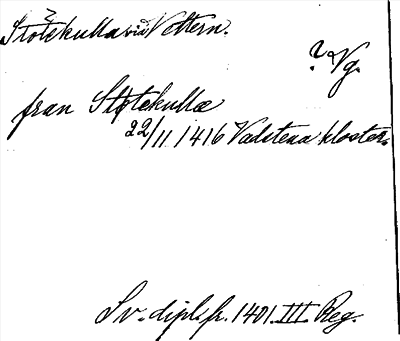 ?
Stötekulla vid Vettern.
? Vg.
från Stötekulla
22/11 1416 Vadstena kloster.
Sv. dipl. fr. 1401. III. Reg.